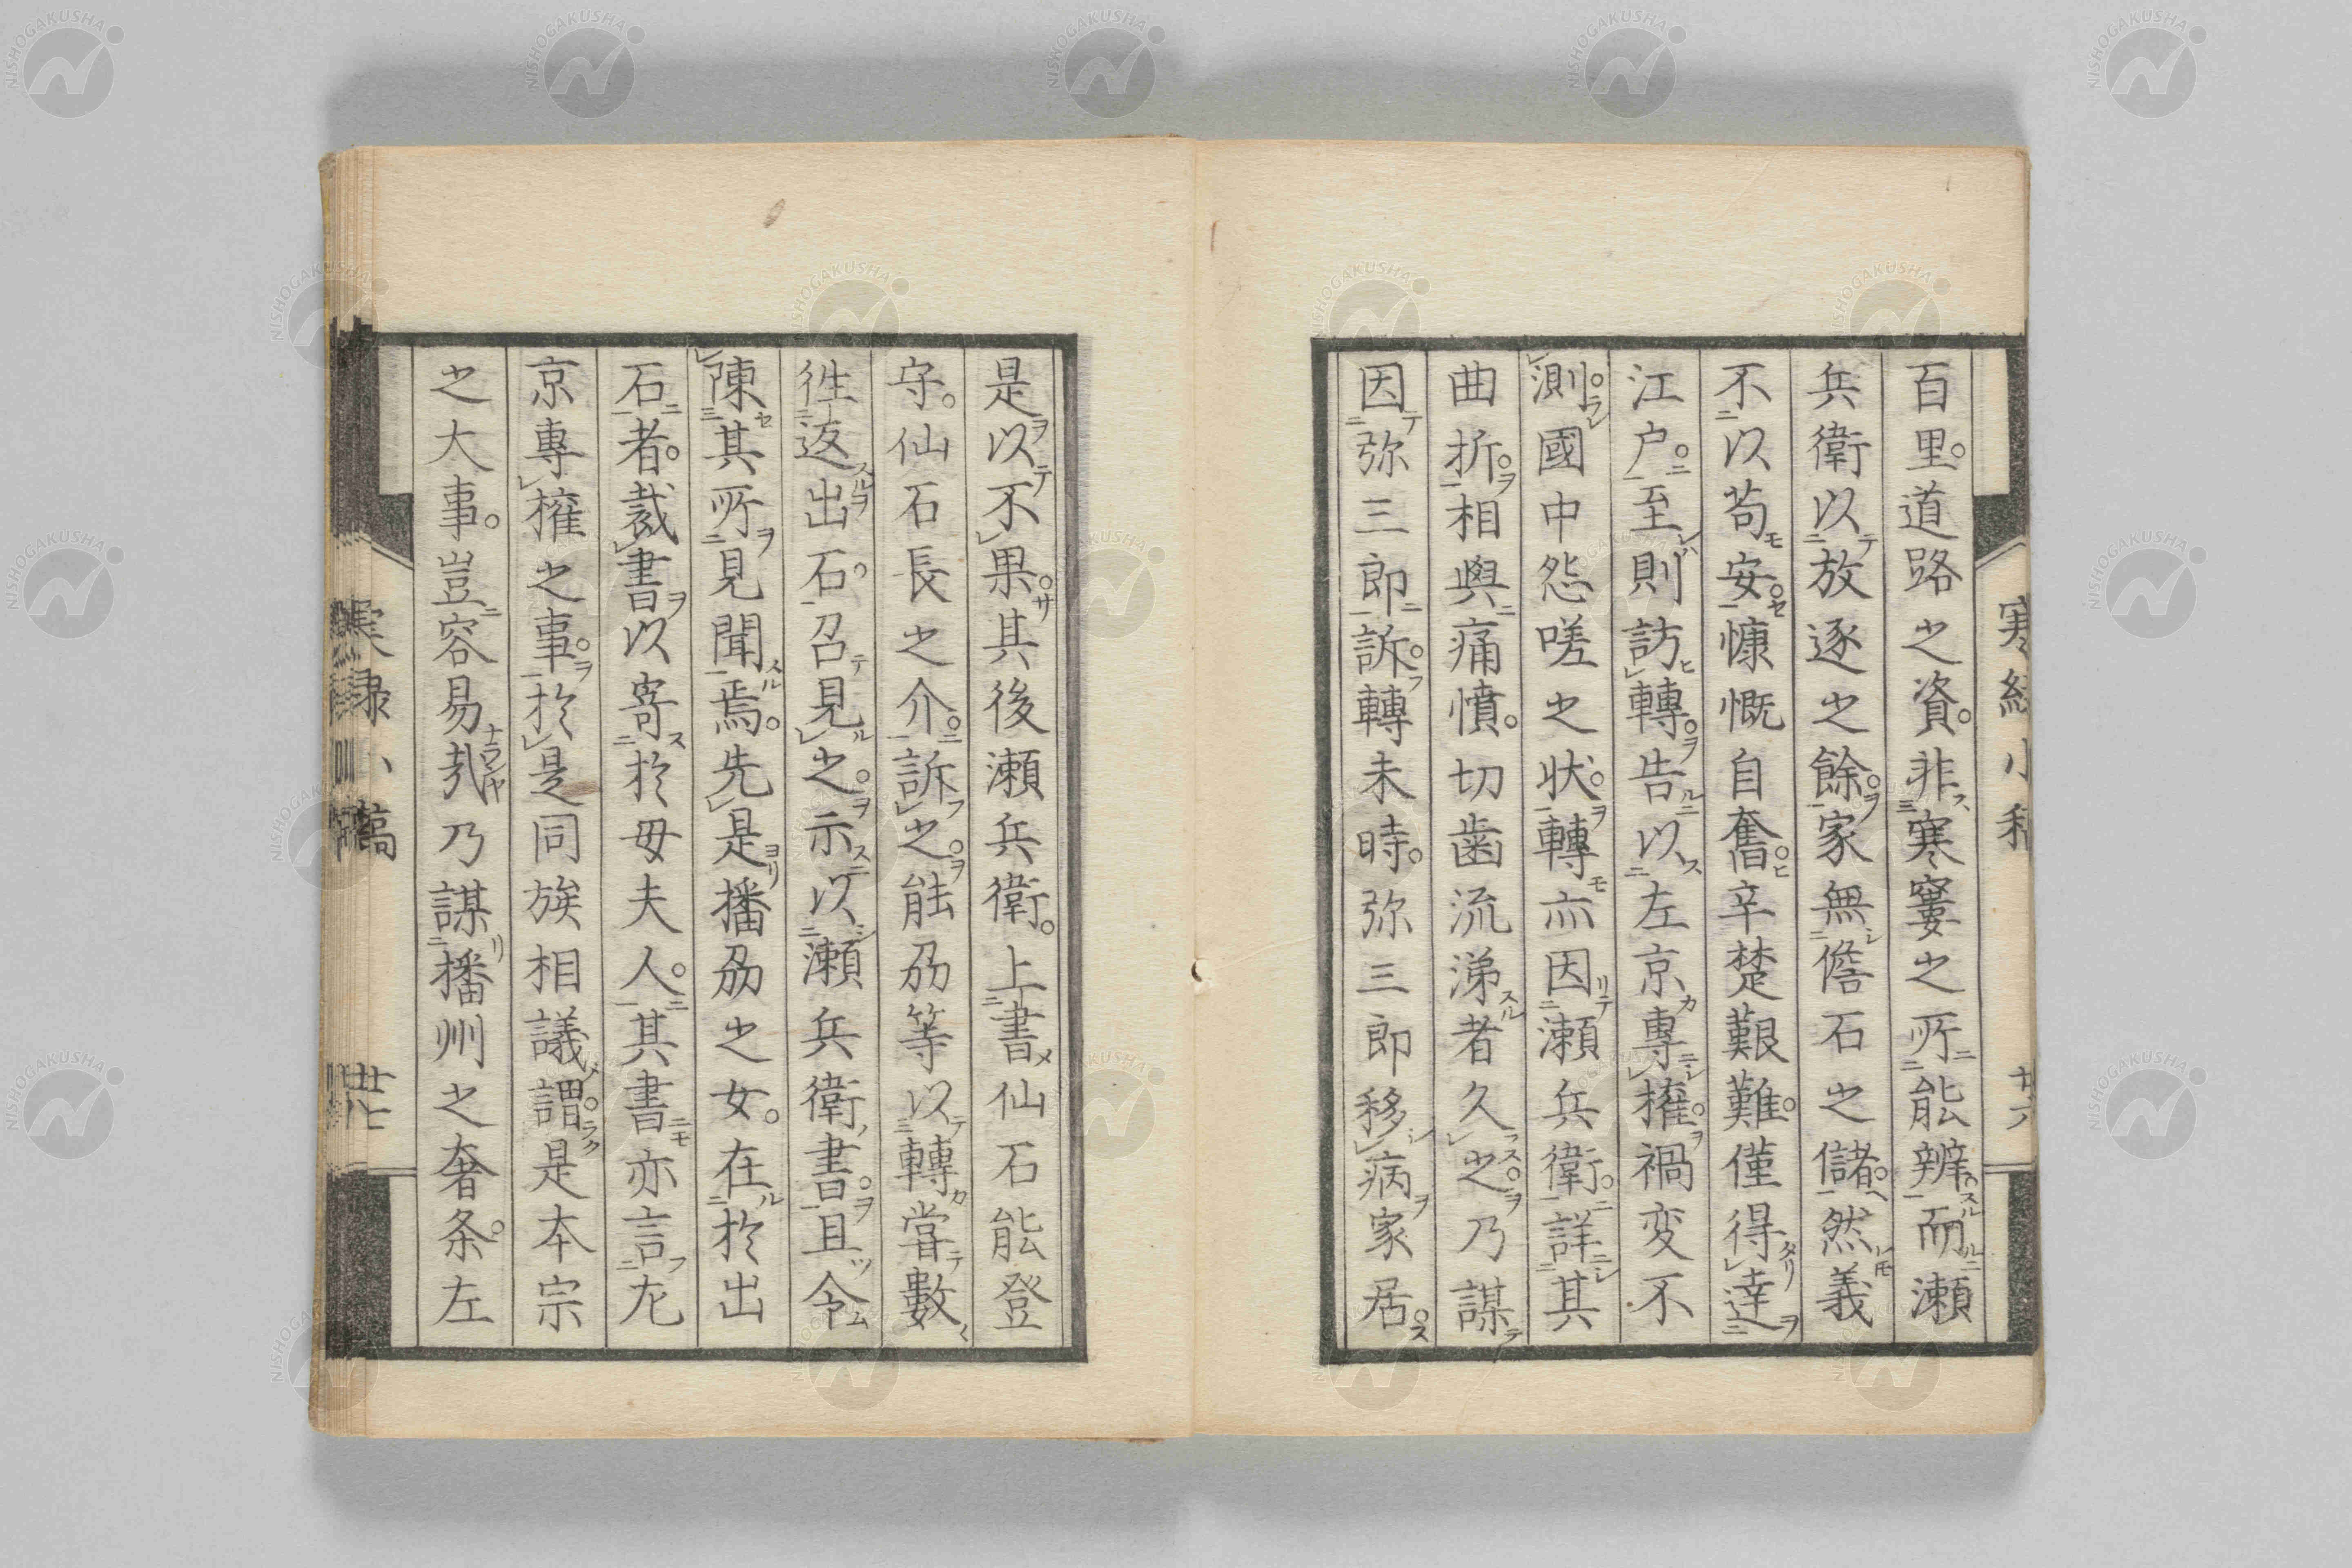 百里。道路之資。非寒窶之所能辨而瀬
兵衛以放逐之餘。家無儋石之儲。然義
不以苟安。慷慨自奮。辛楚艱難。僅得達
江戸。至則訪轉。告以左京專擅。禍変不
測。國中怨嗟之状。轉亦因瀬兵衛。詳其
曲折。相與痛憤。切歯流涕者久之。乃謀
因弥三郎訴。轉未時。弥三郎移病家居。
是以不果。其後瀬兵衛。上書仙石能登
守。仙石長之介。訴之。能刕等以轉嘗數
往返出石。召見之。示以瀬兵衛書。且令
陳其所見聞焉。先是播刕之女。在於出
石者。裁書以寄於母夫人。其書亦言左
京專擅之事。於是同族相議謂。是本宗
之大事。豈容易哉乃謀播州之奢条。左
廿七
NISHOGAKUSHA